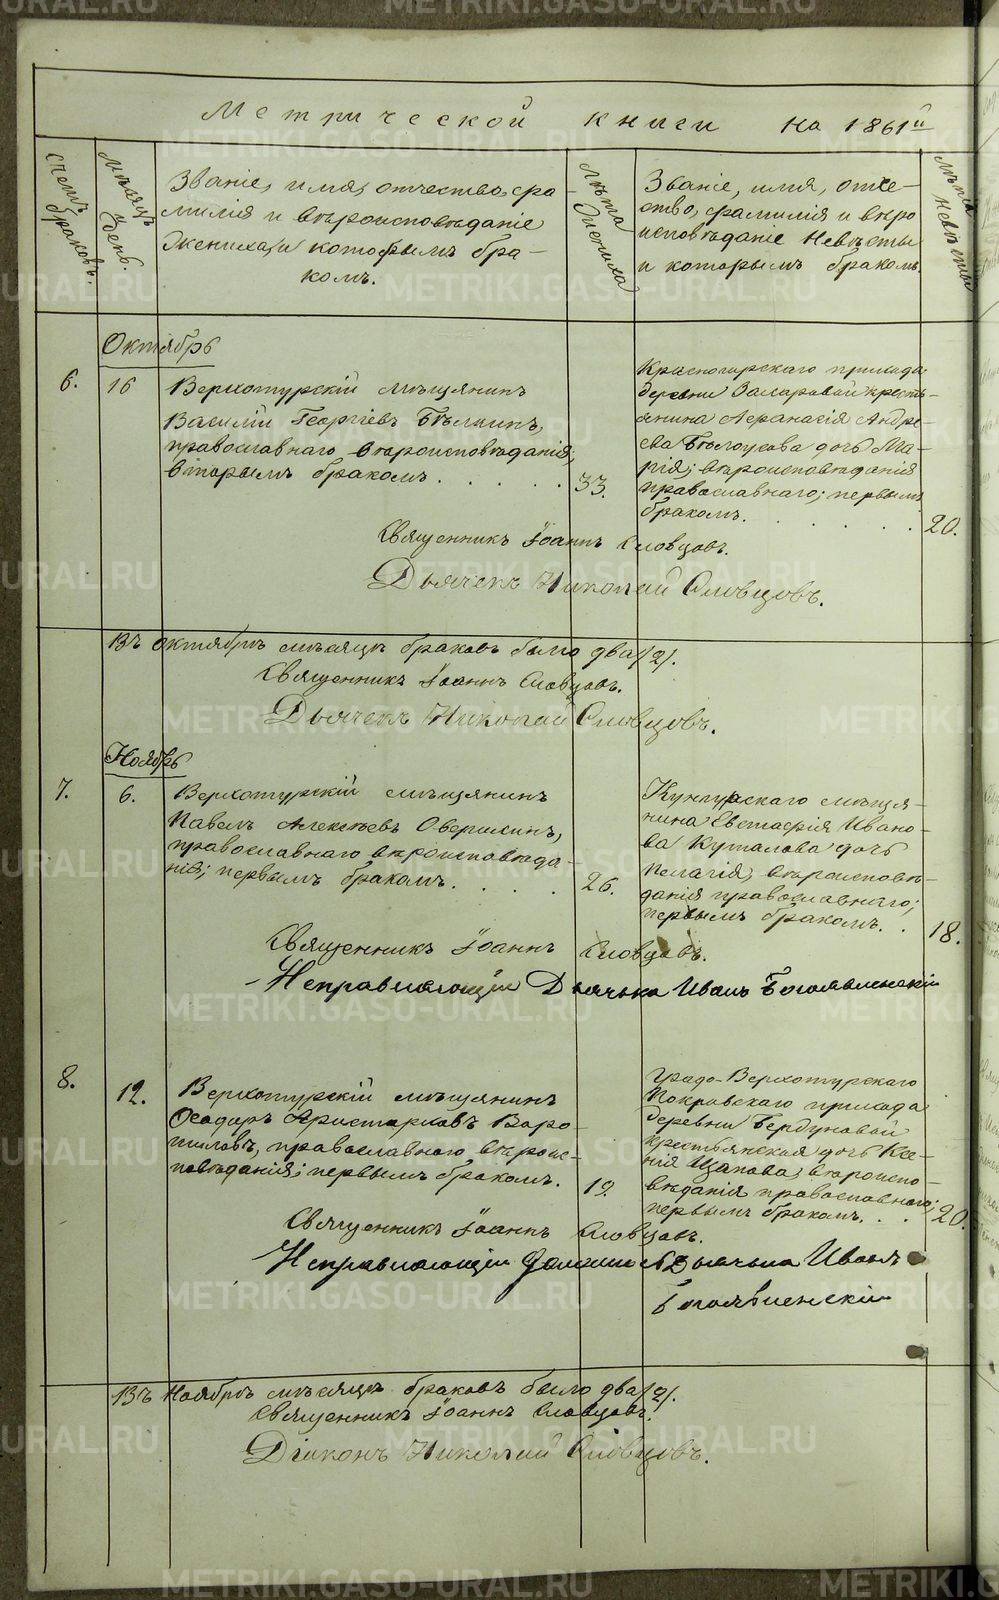 Метрической книги на 1861й
Счетъ браковъ.
Мѣсяцъ и день.
Званіе, имя, отчество, фа-
милія и вѣроисповѣданіе
Жениха, и которымъ бра-
комъ.
Лѣта Жениха
Званіе, имя, отче-
ство, фамилія и вѣро
исповѣданіе Невѣсты
и которымъ бракомъ.
Лѣта невѣсты
Октябрь
6. 16
Верхотурскій мѣщанинъ
Василій Георгіевъ Бѣлкинъ,
православнаго вѣроисповѣданія;
вторымъ бракомъ. . . . . . 33.
Красногорскаго прихода
деревни Захаровой кресть-
янина Афанасія Андре-
ева Бѣлоусова дочь Ма-
рія; вѣроисповѣданія
православнаго; первымъ
бракомъ. . . . . . 20.
Священникъ Іоаннъ Словцовъ.
Дьячекъ Николай Словцовъ.
Въ октябрѣ мѣсяцѣ браковъ было два /2/.
Священникъ Іоаннъ Словцовъ.
Дьячекъ Николай Словцовъ.
Ноябрь
7. 6.
Верхотурскій мѣщанинъ
Павелъ Алексѣевъ Оверинъ,
православнаго вѣроисповѣда-
нія; первымъ бракомъ. . . . . 26.
Кунгурскаго мѣща-
нина Евстафія Ивано-
ва Куталова дочь
Пелагія, вѣроисповѣ-
данія православнаго;
первымъ бракомъ. . . 18.
Священникъ Іоаннъ Словцовъ.
Исправляющій Дьячка Иванъ Богоявленскій
8. 12.
Верхотурскій мѣщанинъ
Феодоръ Аристарховъ Воро-
шиловъ, православнаго вѣроис-
повѣданія; первымъ бракомъ. 19.
Градо-Верхотурскаго
Покровскаго прихода
деревни Бердуновой
крестьянская дочь Ксе-
нія Щапова, вѣроиспо-
вѣданія православнаго;
первымъ бракомъ. . . 20.
Священникъ Іоаннъ Словцовъ.
Исправляющій должность Дьячка Иванъ
Богоявленскій
Въ Ноябрѣ мѣсяцѣ браковъ было два /2/.
Священникъ Іоаннъ Словцовъ.
Діаконъ Николай Словцовъ.
METRIKI.GASO-URAL.RU